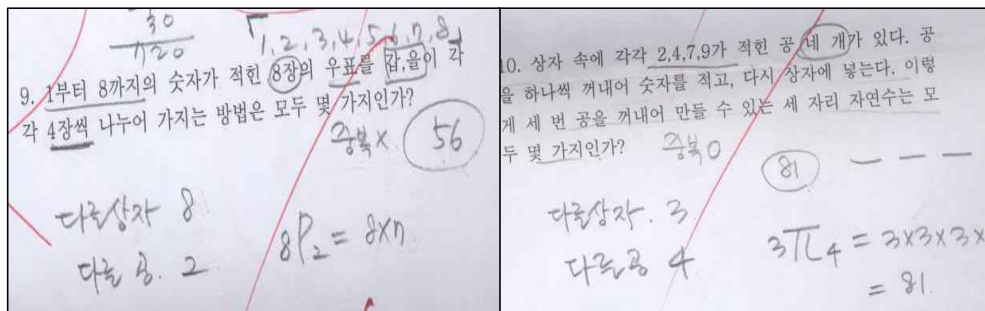 30
720
1, 2, 3, 4, 5, 6, 7, 8
9. 1부터 8까지의 숫자가 적힌 8장의 우표를 갑,을이 각
각 4장씩 나누어 가지는 방법은 모두 몇 가지인가?
중복 x 56
다른상자 8
다른 공. 2
8P2 = 8x7
10. 상자 속에 각각 2,4,7,9가 적힌 공 네 개가 있다. 공
을 하나씩 꺼내어 숫자를 적고, 다시 상자에 넣는다. 이렇
게 세 번 공을 꺼내어 만들 수 있는 세 자리 자연수는 모
두 몇 가지인가? 중복 O
81
다른상자. 3
다른공 4
3π4 = 3x3x3x
= 81.